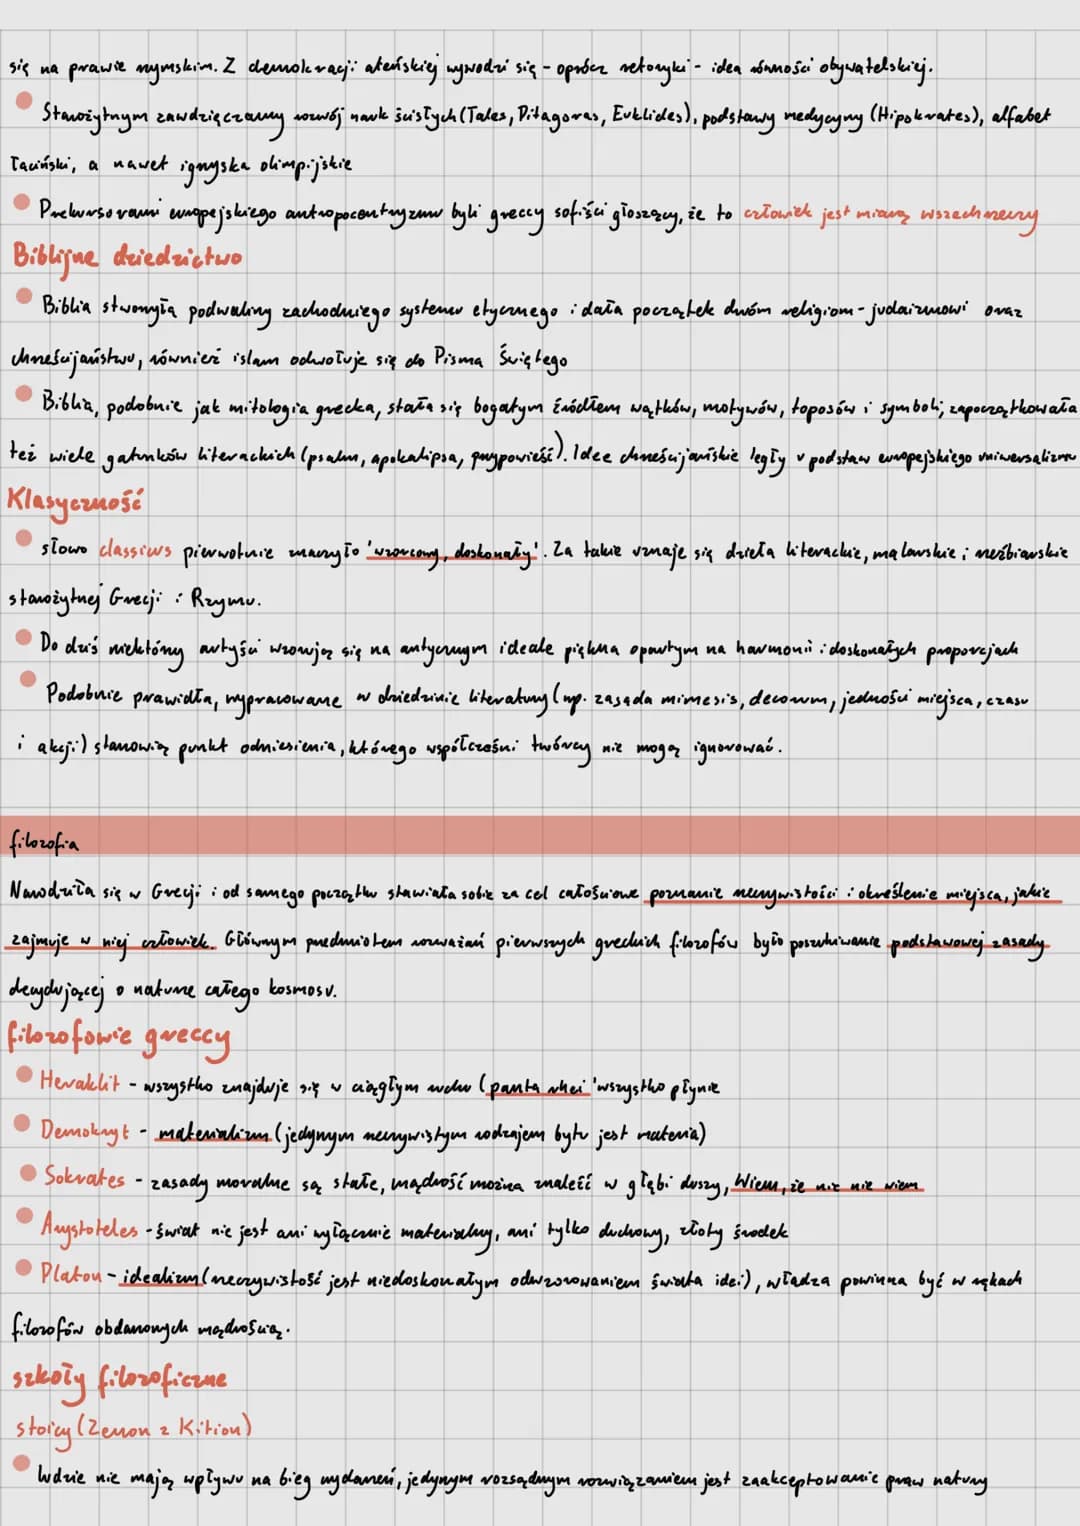 się na prawie rzymskim. Z demokracji ateńskiej wywodzi się - oprócz retoryki - idea równości obywatelskiej.
Starożytnym zawdzięczamy rozwój nauk ścisłych (Tales, Pitagoras, Euklides), podstawy medycyny (Hipokrates), alfabet
łaciński, a nawet igrzyska olimpijskie
Prekursorami europejskiego antropocentryzmu byli greccy sofiści głoszący, że to człowiek jest miarą wszechrzeczy
Biblijne dziedzictwo
Biblia stworzyła podwaliny zachodniego systemu etycznego i dała początek dwóm religiom - judaizmowi oraz
chrześcijaństwu, również islam odwołuje się do Pisma Świętego
Biblia, podobnie jak mitologia grecka, stała się bogatym źródłem wątków, motywów, toposów i symboli; zapoczątkowała
też wiele gatunków literackich (psalm, apokalipsa, przypowieść). Idee chrześcijańskie legły u podstaw europejskiego uniwersalizmu
Klasyczność
słowo classicus pierwotnie znaczyło 'wzorcowy, doskonały'. Za takie uznaje się dzieła literackie, malarskie i rzeźbiarskie
starożytnej Grecji i Rzymu.
Do dziś niektórzy artyści wzorują się na antycznym ideale piękna opartym na harmonii i doskonałych proporcjach
Podobnie prawidła, wypracowane w dziedzinie literatury (np. zasada mimesis, decorum, jedności miejsca, czasu
i akcji) stanowią punkt odniesienia, którego współcześni twórcy nie mogą ignorować.
filozofia
Narodziła się w Grecji i od samego początku stawiała sobie za cel całościowe poznanie rzeczywistości i określenie miejsca, jakie
zajmuje w niej człowiek. Głównym przedmiotem rozważań pierwszych greckich filozofów było poszukiwanie podstawowej zasady
decydującej o naturze całego kosmosu.
filozofowie greccy
Heraklit - wszystko znajduje się w ciągłym ruchu (panta rhei 'wszystko płynie
Demokryt - materializm (jedynym rzeczywistym rodzajem bytu jest materia)
Sokrates - zasady moralne są stałe, mądrość można znaleźć w głębi duszy, Wiem, że nic nie wiem
Arystoteles - świat nie jest ani wyłącznie materialny, ani tylko duchowy, złoty środek
Platon - idealizm (rzeczywistość jest niedoskonałym odwzorowaniem świata idei), władza powinna być w rękach
filozofów obdarzonych mądrością.
szkoły filozoficzne
stoicy (Zenon z Kition)
ludzie nie mają wpływu na bieg wydarzeń, jedynym rozsądnym rozwiązaniem jest zaakceptowanie praw natury